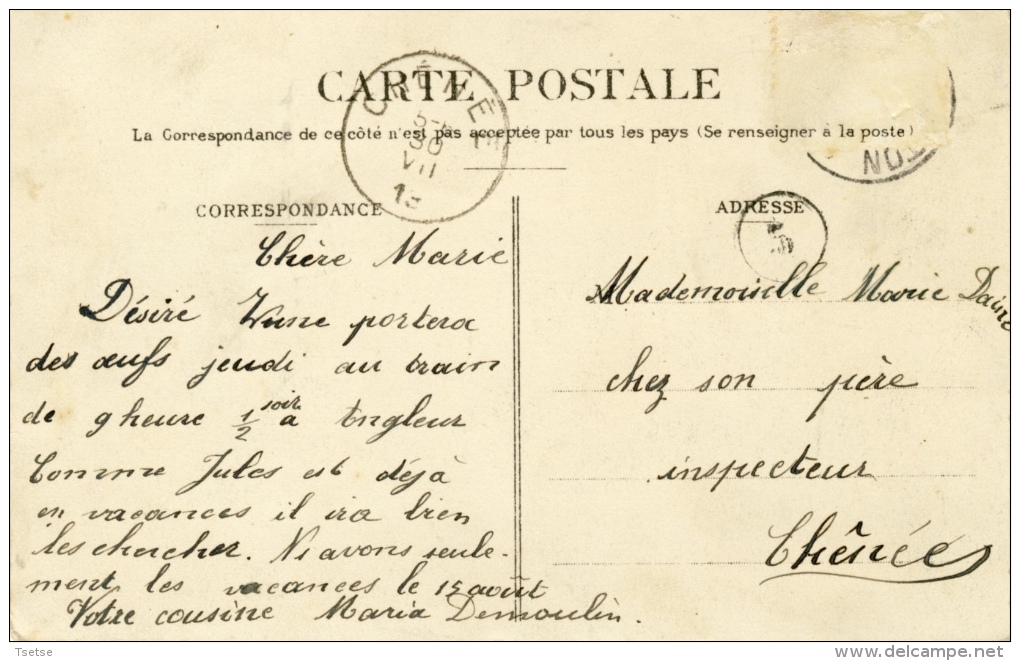 CARTE POSTALE
La Correspondance de ce côté n'est pas acceptée par tous les pays (Se renseigner à la poste)
CHÊNÉE
5-
30
VII
13
CORRESPONDANCE
Chère Marie
Désiré portera
des œufs jeudi au train
de 9 heure 1/2 soir à Angleur
Comme Jules est déjà
en vacances il ira bien
les chercher. Ns avons seule-
ment les vacances le 15 août
Votre cousine Maria Demoulin.
ADRESSE
Mademoiselle Marie
chez son père
inspecteur
Chênée
Tsetse
delcampe.net